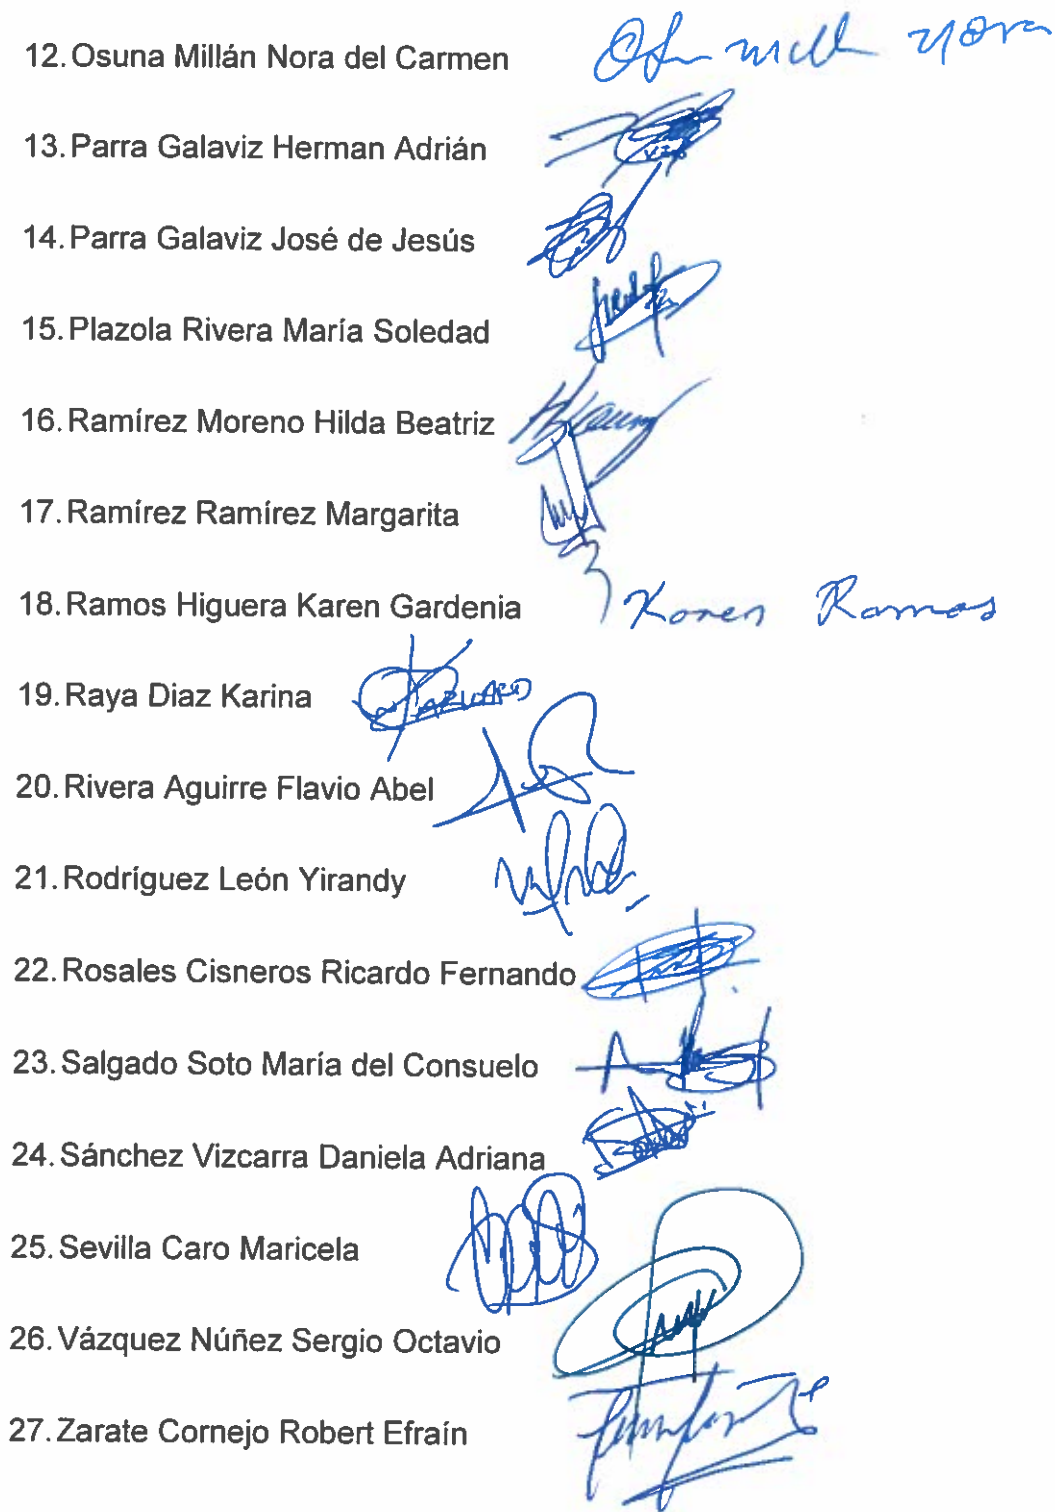 12. Osuna Millán Nora del Carmen
13. Parra Galaviz Herman Adrián
14. Parra Galaviz José de Jesús
15. Plazola Rivera María Soledad
16. Ramírez Moreno Hilda Beatriz
17. Ramírez Ramírez Margarita
18. Ramos Higuera Karen Gardenia Karen Ramos
19. Raya Diaz Karina
20. Rivera Aguirre Flavio Abel
21. Rodríguez León Yirandy
22. Rosales Cisneros Ricardo Fernando
23. Salgado Soto María del Consuelo
24. Sánchez Vizcarra Daniela Adriana
25. Sevilla Caro Maricela
26. Vázquez Núñez Sergio Octavio
27. Zarate Cornejo Robert Efraín